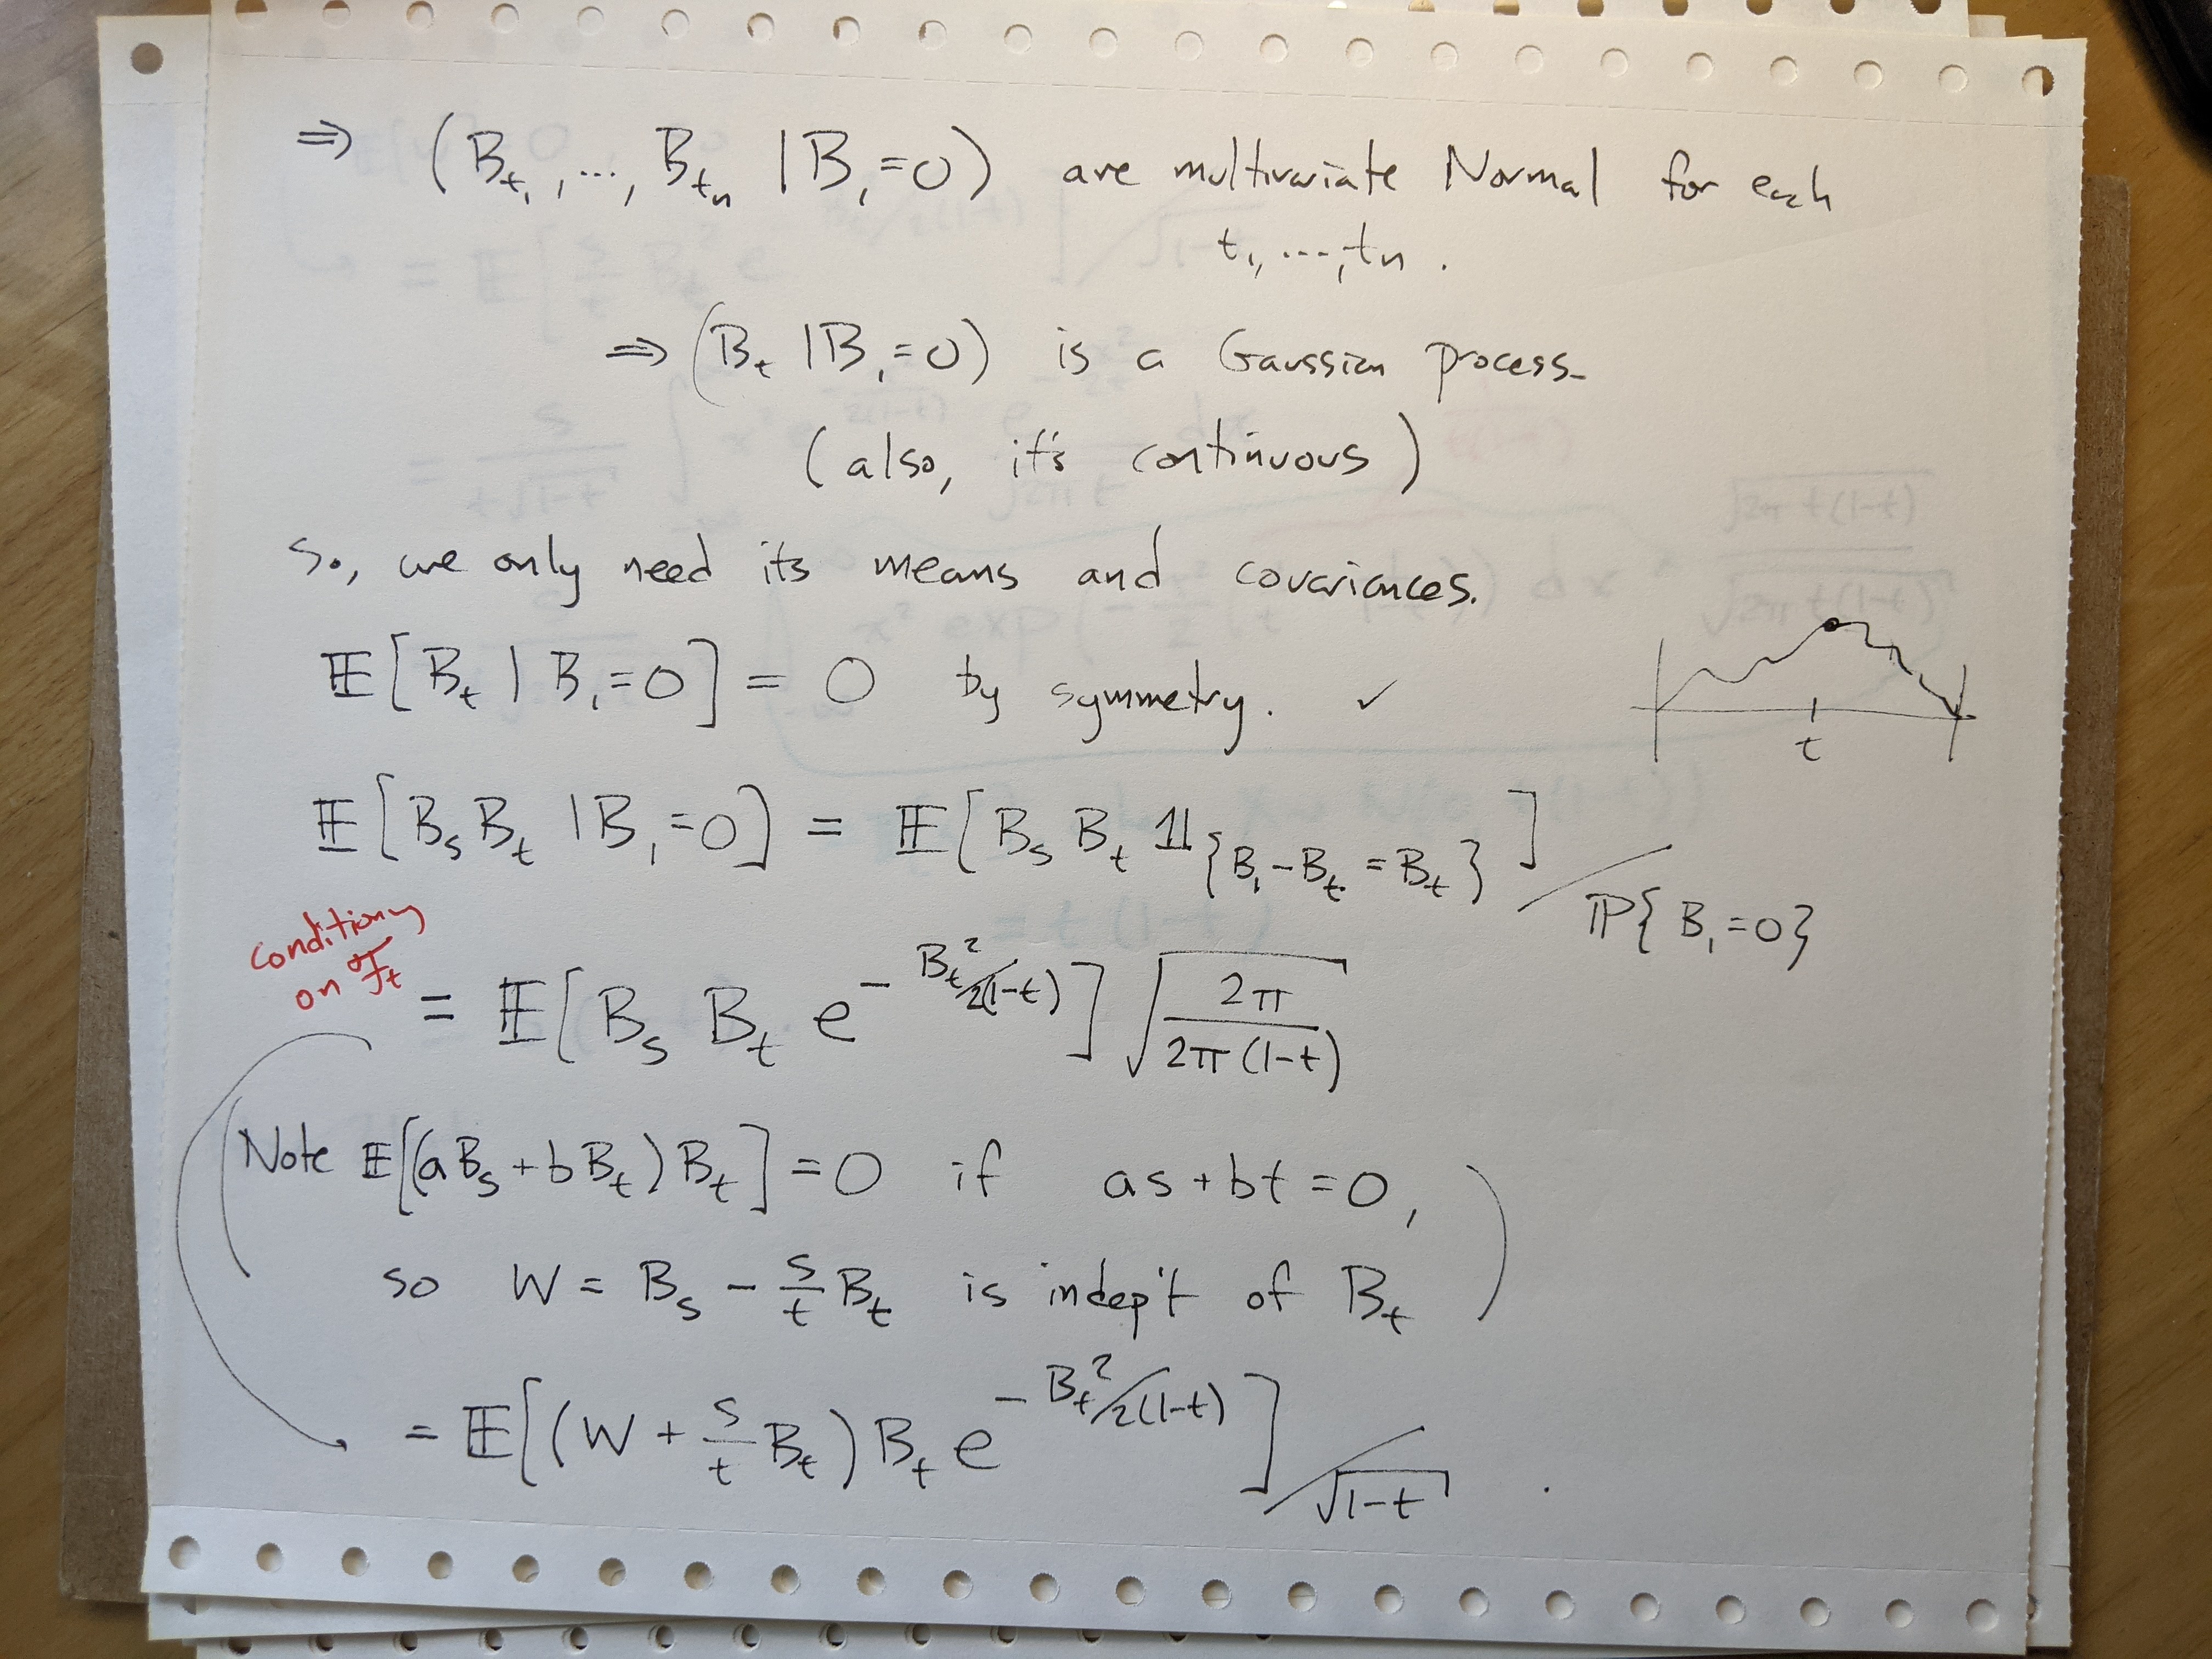 ⇒ (B_{t_1}, ..., B_{t_n} | B_1 = 0) are multivariate Normal for each
t_1, ..., t_n.
⇒ (B_t | B_1 = 0) is a Gaussian process.
(also, it's continuous)
So, we only need its means and covariances.
𝔼[B_t | B_1 = 0] = 0 by symmetry. ✓
t
𝔼[B_s B_t | B_1 = 0] = 𝔼[B_s B_t 𝟙_{B_1 - B_t = B_t}] / ℙ{B_1 = 0}
conditioning
on ℱ_t
= 𝔼[B_s B_t e^{-B_t^2/2(1-t)}] √(2π / 2π(1-t))
(Note 𝔼[(aB_s + bB_t)B_t] = 0 if as + bt = 0,
so W = B_s - s/t B_t is indep't of B_t)
= 𝔼[(W + s/t B_t) B_t e^{-B_t^2/2(1-t)}] / √(1-t) .